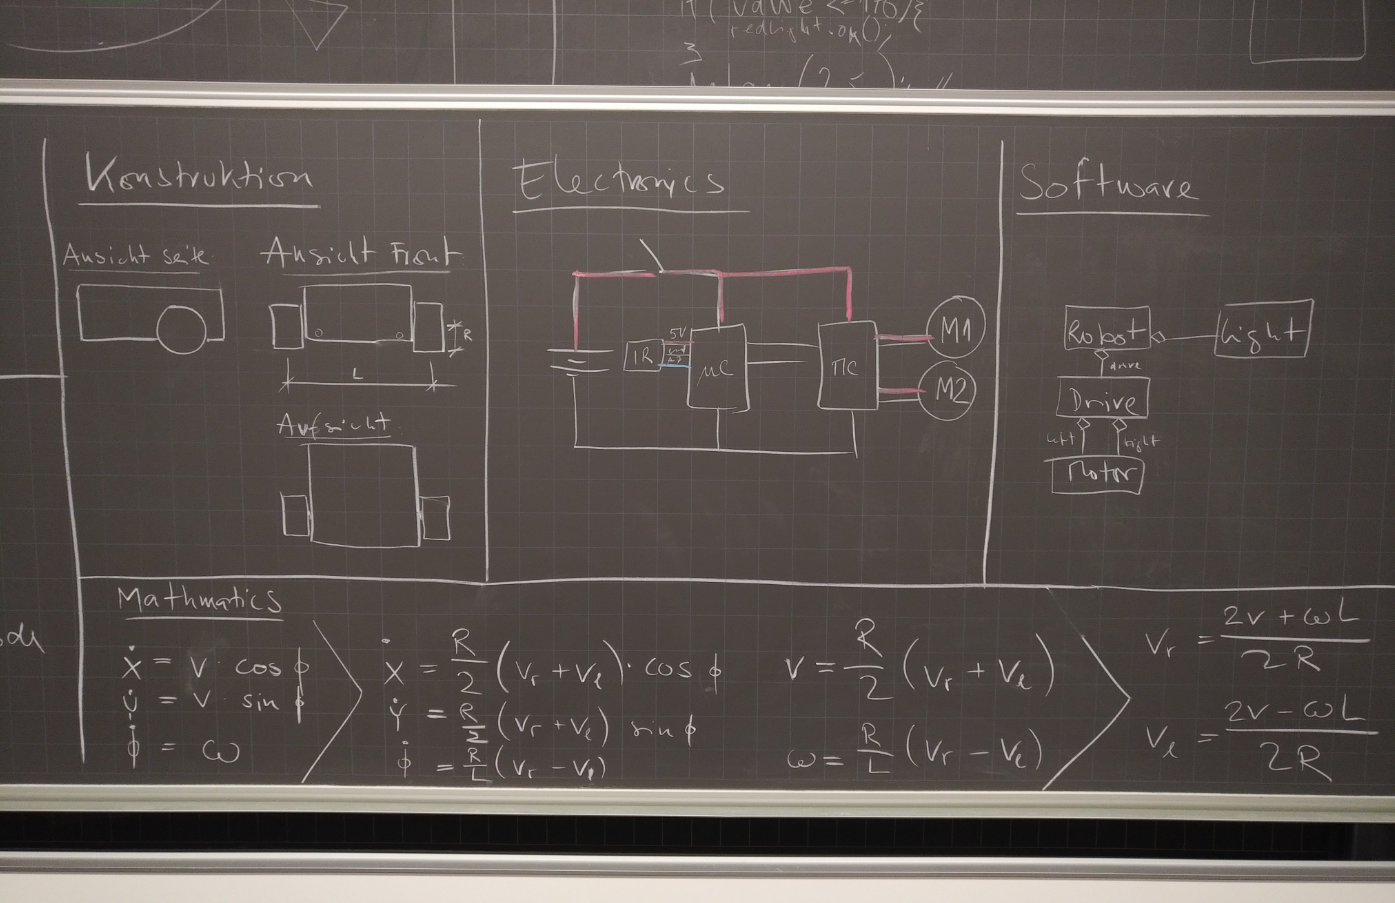 if (value <= 170) {
redlight.on();
}
Konstruktion
Ansicht seite
Ansicht Front
R
L
Aufsicht
Electronics
5V
IR
μC
MC
M1
M2
Software
Robot
Light
drive
Drive
left
right
Motor
Mathmatics
ẋ = v · cos ϕ
ẏ = v · sin ϕ
ϕ̇ = ω
ẋ = R/2 (vr + vl) · cos ϕ
ẏ = R/2 (vr + vl) sin ϕ
ϕ̇ = R/L (vr − vl)
v = R/2 (vr + vl)
ω = R/L (vr − vl)
vr = 2v + ωL / 2R
vl = 2v − ωL / 2R